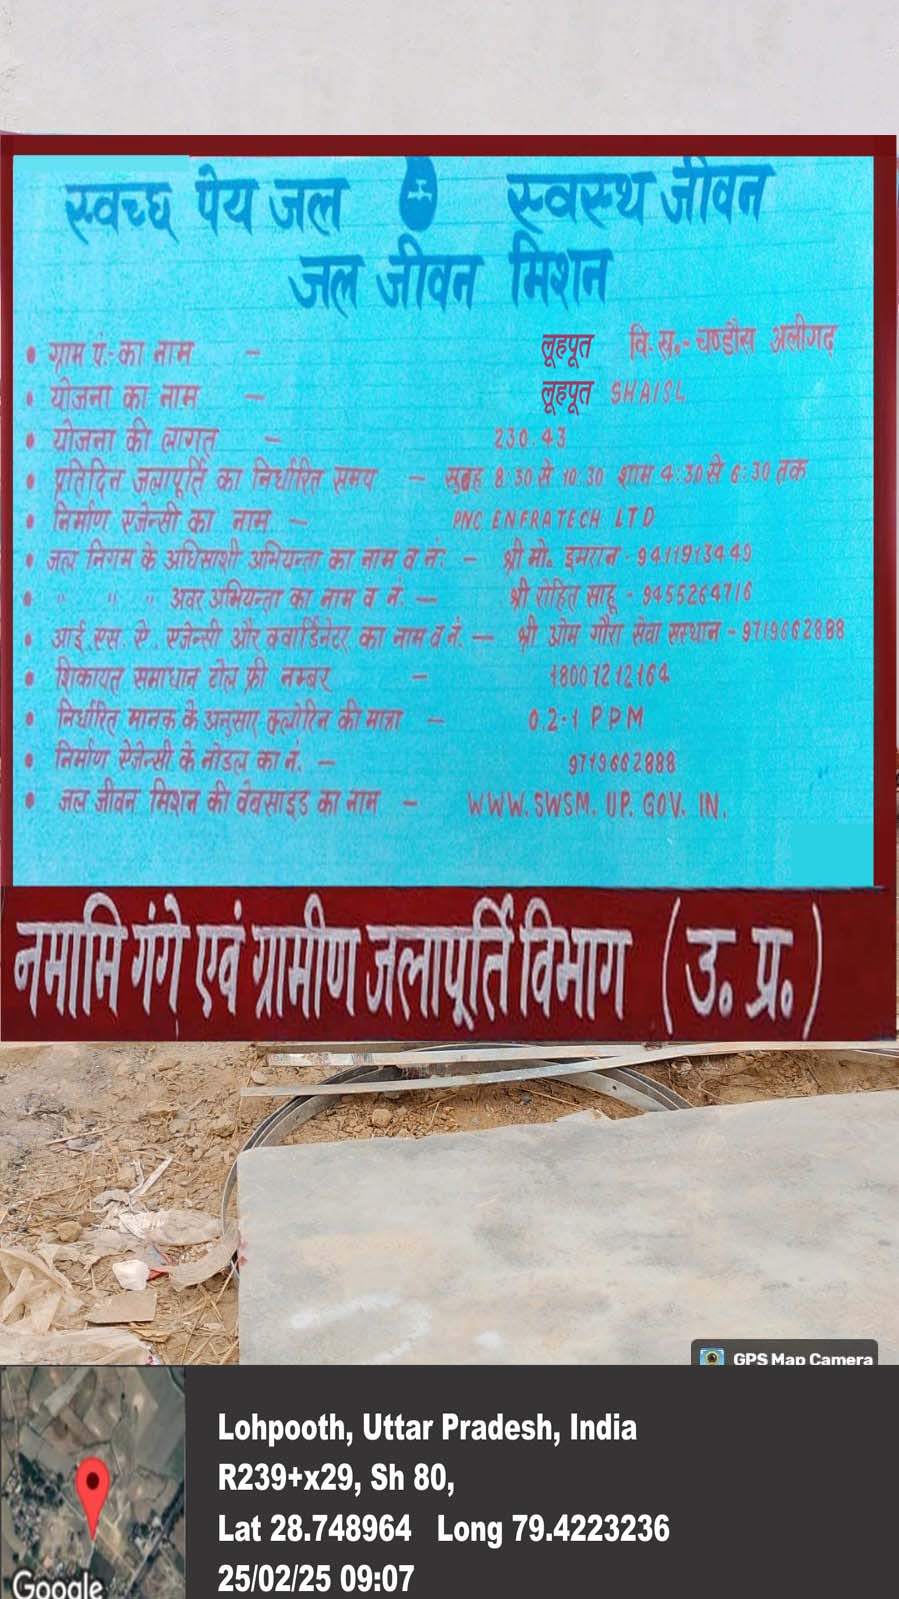 स्वच्छ पेय जल स्वस्थ जीवन
जल जीवन मिशन
• ग्राम पं:- का नाम - लूहपूत वि. ख.- चण्डौस अलीगढ़
• योजना का नाम - लूहपूत SHAISL
• योजना की लागत - 230.43
• प्रतिदिन जलापूर्ति का निर्धारित समय - सुबह 8:30 से 10:30 शाम 4:30 से 6:30 तक
• निर्माण एजेन्सी का नाम - PNC ENFRATECH LTD
• जल निगम के अधिसाशी अभियन्ता का नाम व नं: - श्री मो. इमरान - 9411913449
• " " " अवर अभियन्ता का नाम व नं. - श्री रोहित साहू - 9455264716
• आई.एस. ऐ. एजेन्सी और क्वार्डिनेटर का नाम व नं. - श्री ओम गौरा सेवा सस्थान - 9719662888
• शिकायत समाधान टोल फ्री नम्बर - 18001212164
• निर्धारित मानक के अनुसार क्लोरिन की मात्रा - 0.2-1 PPM
• निर्माण ऐजेन्सी के नोडल का नं. - 9719662888
• जल जीवन मिशन की वेबसाइड का नाम - WWW.SWSM.UP.GOV.IN.
नमामि गंगे एवं ग्रामीण जलापूर्ति विभाग (उ. प्र.)
GPS Map Camera
Lohpooth, Uttar Pradesh, India
R239+x29, Sh 80,
Lat 28.748964 Long 79.4223236
25/02/25 09:07
Google